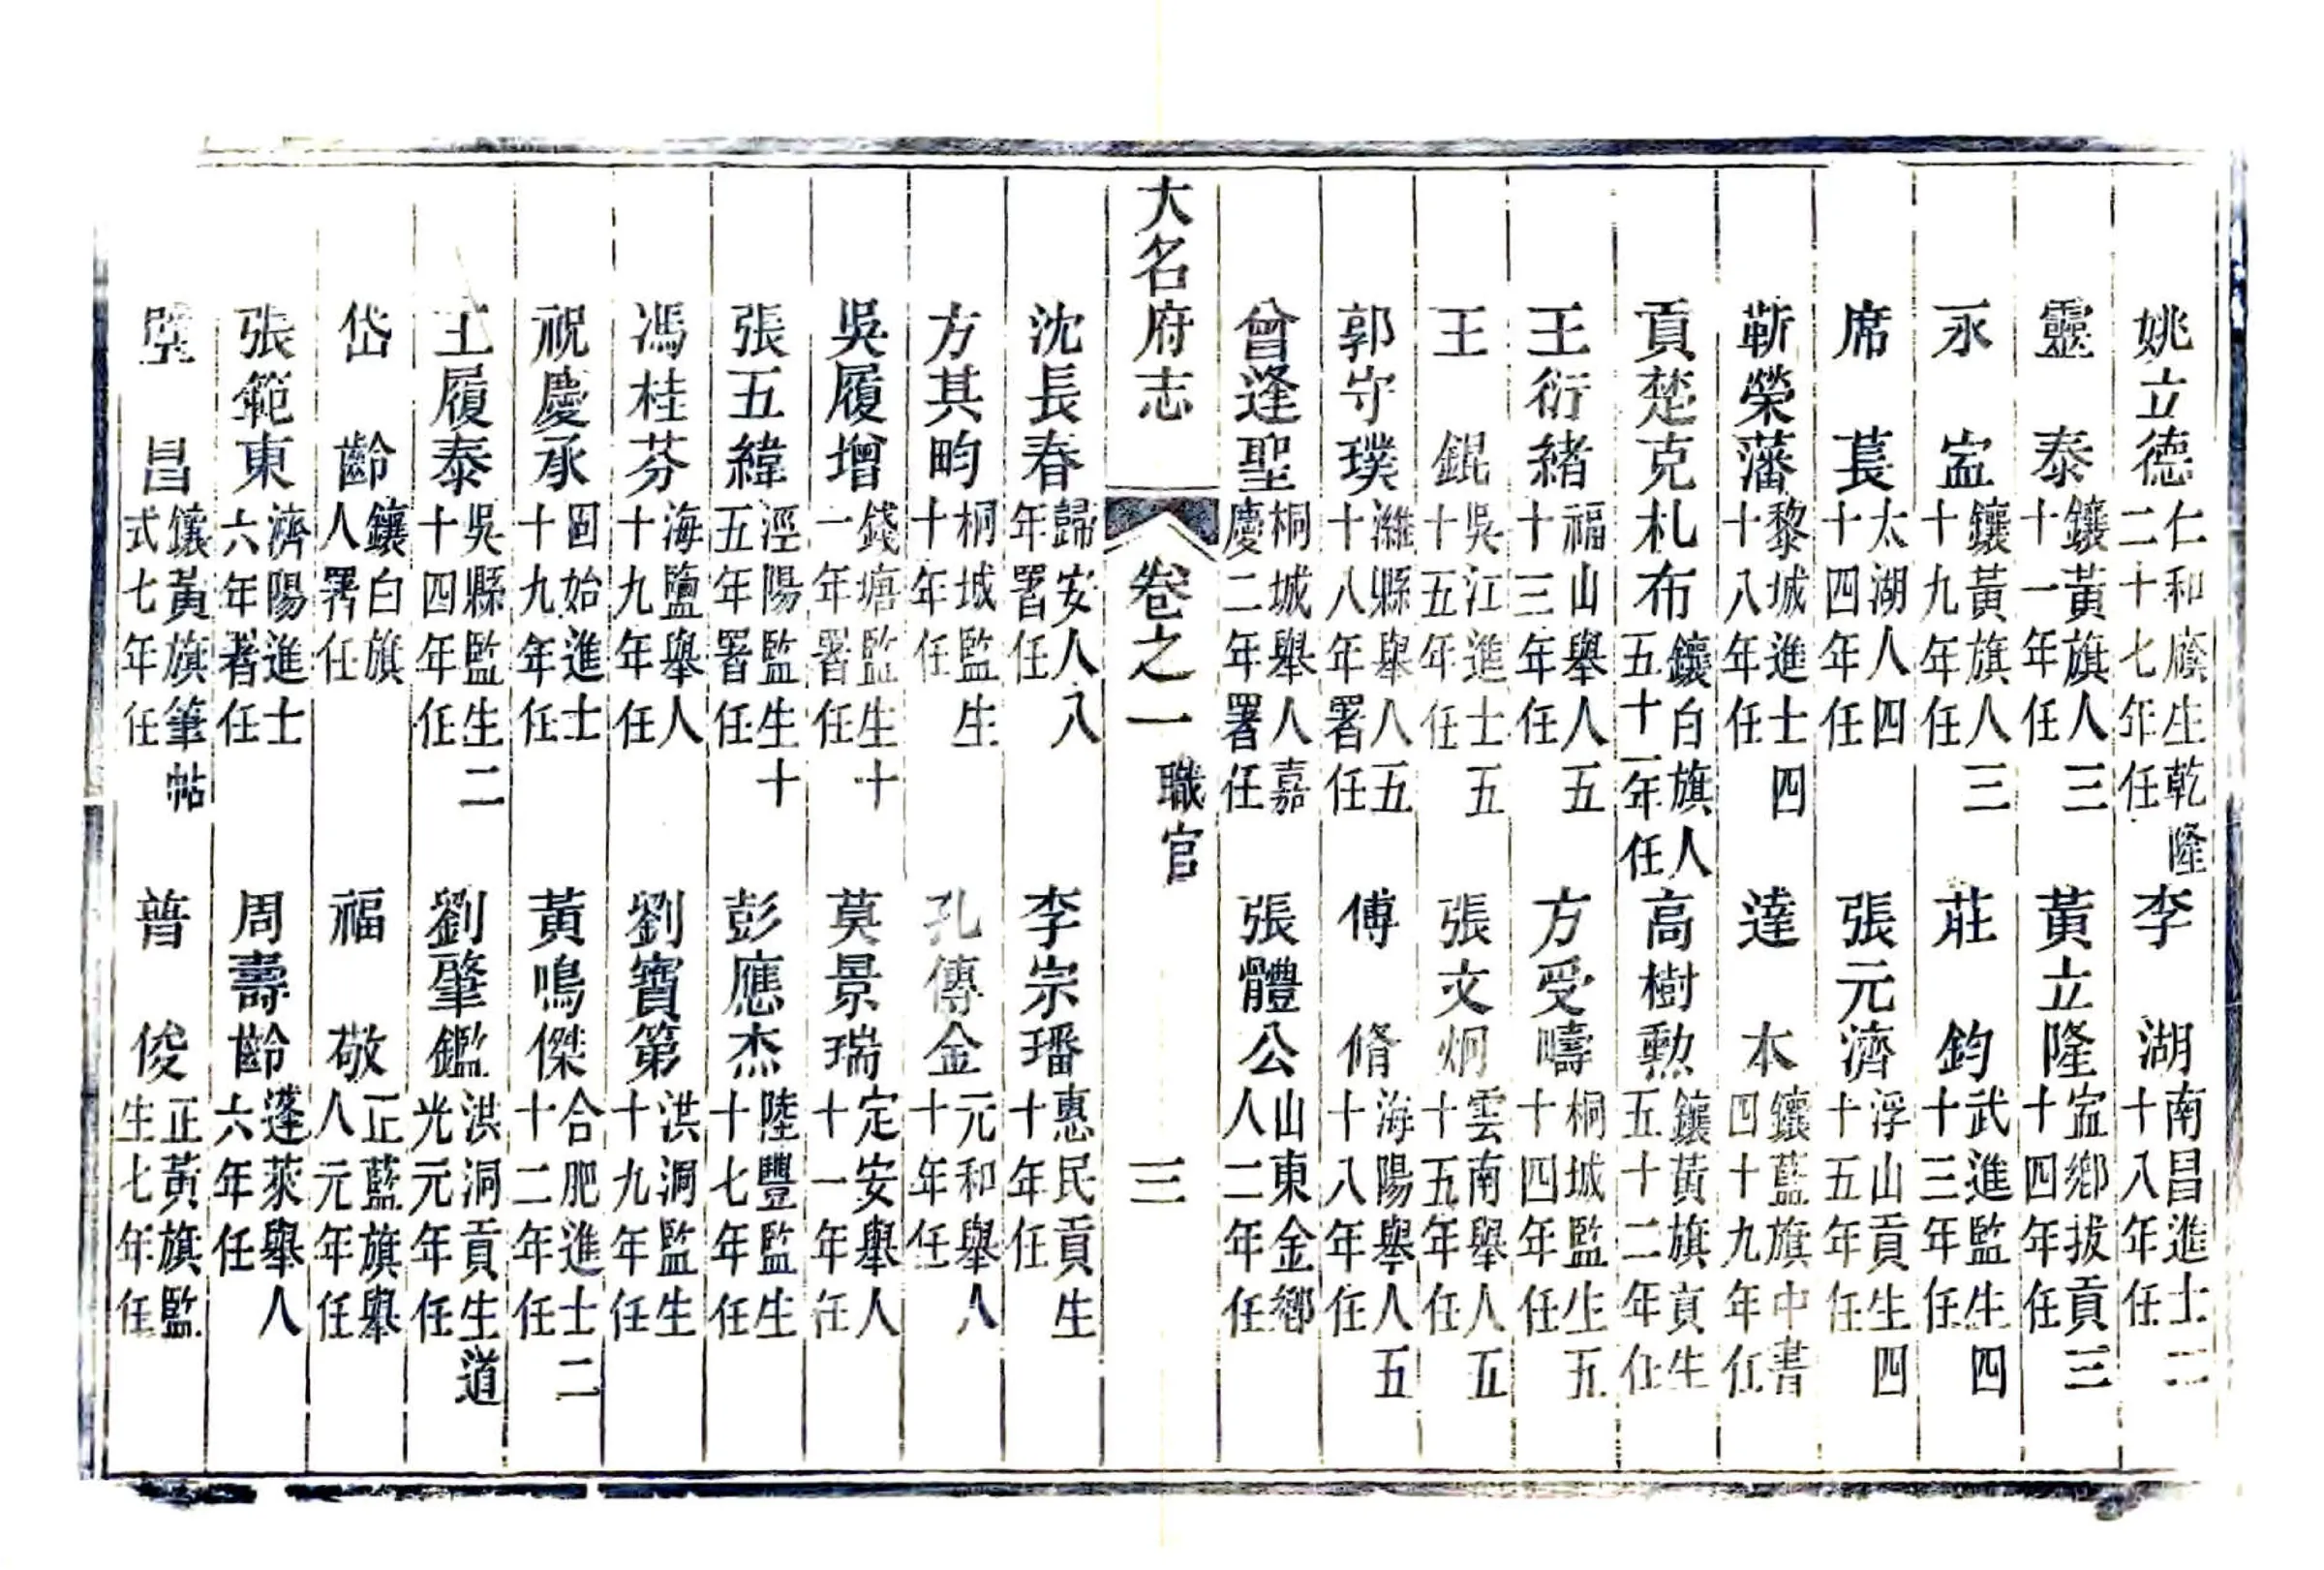 姚立德仁和廕生乾隆二十七年任　李　湖南昌進士二十八年任
靈　泰鑲黃旗人三十一年任　黃立隆寍鄉拔貢三十四年任
永　寍鑲黃旗人三十九年任　莊　鈞武進監生四十三年任
席　萇太湖人四十四年任　張元濟浮山貢生四十五年任
靳榮藩黎城進士四十八年任　達　本鑲藍旗中書四十九年任
貢楚克札布鑲白旗人五十一年任　高樹勲鑲黃旗貢生五十二年任
王衍緒福山舉人五十三年任　方受疇桐城監生五十四年任
王　錕吳江進士五十五年任　張文炯雲南舉人五十五年任
郭守璞濰縣舉人五十八年署任　傅　脩海陽舉人五十八年任
曾逢聖桐城舉人嘉慶二年署任　張體公山東金鄉人二年任
大名府志　卷之一　職官　三
沈長春歸安人八年署任　李宗璠惠民貢生十年任
方其畇桐城監生十年任　孔傳金元和舉人十年任
吳履增錢塘監生十一年署任　莫景瑞定安舉人十一年任
張五緯涇陽監生十五年署任　彭應杰陸豐監生十七年任
馮桂芬海鹽舉人十九年任　劉寶第洪洞監生十九年任
祝慶承固始進士十九年任　黃鳴傑合肥進士二十二年任
王履泰吳縣監生二十四年任　劉肇鑑洪洞貢生道光元年任
岱　齡鑲白旗人署任　福　敬正藍旗舉人元年任
張範東濟陽進士六年署任　周壽齡蓬萊舉人六年任
璧　昌鑲黃旗筆帖式七年任　普　俊正黃旗監生七年任